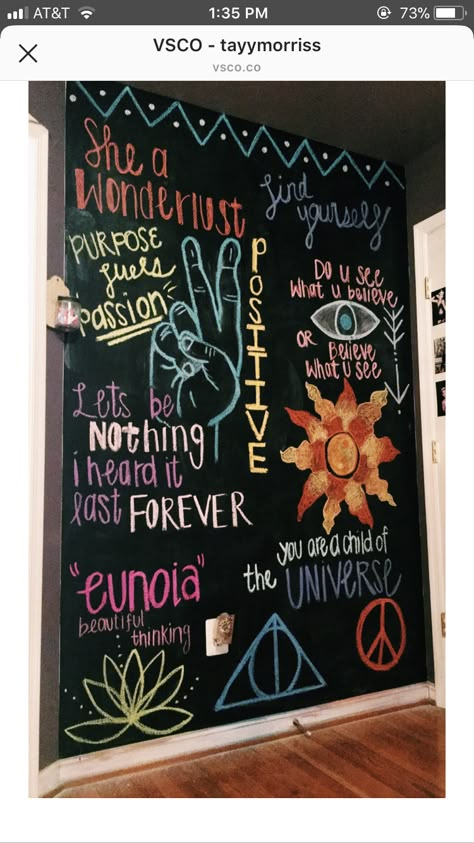 AT&T 1:35 PM 73%
VSCO - tayymorriss
vsco.co
She a
Wonderlust
find
yourself
PURPOSE
fuels
passion
POSITIVE
DO U SEE
What u believe
OR Believe
What u see
Lets be
Nothing
i heard it
last FOREVER
you are a child of
the UNIVERSE
"eunoia"
beautiful
thinking